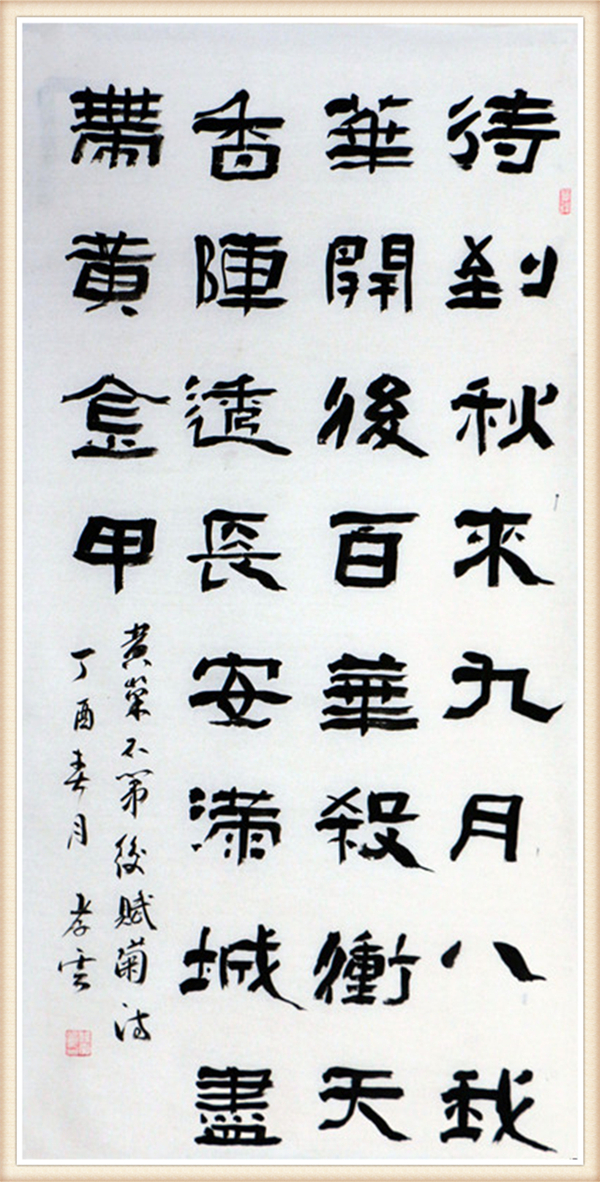 待到秋來九月八我
華開後百華殺衝天
香陣透長安滿城盡
帶黄金甲
黄巢不第後賦菊詩
丁酉春月 孝雲